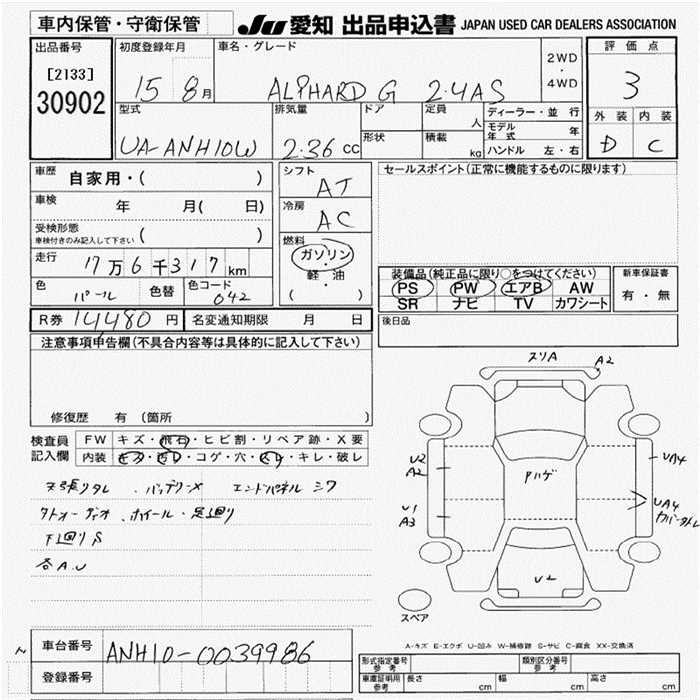 車内保管・守衛保管
JU 愛知 出品申込書 JAPAN USED CAR DEALERS ASSOCIATION
出品番号
[2133]
30902
初度登録年月
15 8月
車名・グレード
ALPHARD G 2.4AS
2WD
・
4WD
評価点
3
外装 内装
D C
型式
UA-ANH10W
排気量
2.36 cc
ドア
形状
定員
人
積載
kg
ディーラー・並行
モデル年式 年
ハンドル 左・右
車歴
自家用・( )
車検
年 月( 日)
受検形態
車検付きのみ記入して下さい ( )
走行
17万6千317km
色
パール
色替
色コード
042
シフト
AT
冷房
AC
燃料
ガソリン
・
軽・油
( )
セールスポイント(正常に機能するものに限ります)
装備品(純正品に限り○をつけてください)
PS PW エアB AW
SR ナビ TV カワシート
新車保証書
有・無
後日品
R券 14480 円
名変通知期限 月 日
注意事項申告欄(不具合内容等は具体的に記入して下さい)
修復歴 有 (箇所 )
検査員
記入欄
FW キズ・飛石・ヒビ割・リペア跡・X要
内装 キズ・汚レ・コゲ・穴・スレ・キレ・破レ
天張りタレ、バッテリーX エンドパネルシワ
タトオーディオ、ホイール・足廻り
下廻りS
各A.U
スリA
A2
U2
A2
U1
A3
Pハゲ
U2
UA4
UA4
スペア
A-キズ E-エクボ U-凹み W-補修跡 S-サビ C-腐食 XX-交換済
車台番号
ANH10-0039986
登録番号
形式指定番号
参考
類別区分番号
参考
車庫証明用
参考
長さ cm
幅 cm
高さ cm